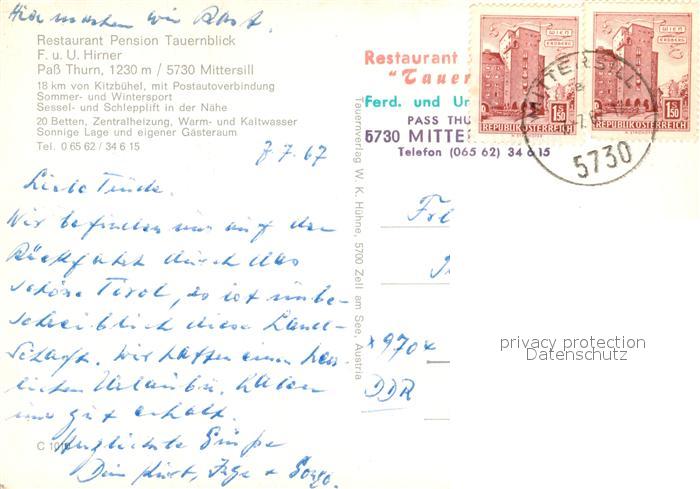 Hier machen wir Rast.
Restaurant Pension Tauernblick
F. u. U. Hirner
Paß Thurn, 1230 m / 5730 Mittersill
18 km von Kitzbühel, mit Postautoverbindung
Sommer- und Wintersport
Sessel- und Schlepplift in der Nähe
20 Betten, Zentralheizung, Warm- und Kaltwasser
Sonnige Lage und eigener Gästeraum
Tel. 0 65 62 / 34 6 15
7.7.67
Liebe
Wir befinden uns auf der
Rückfahrt durch das
schöne Tirol, es ist unbe-
schreiblich diese Land-
schaft. Wir hatten einen herr-
lichen Urlaub u. haben
uns gut erholt.
Herzlichste Grüße
Dein Kurt, Inge +
C 10
Tauernverlag W. K. Hühne, 5700 Zell am See, Austria
Restaurant
"Tauer
Ferd. und Ur
PASS THU
5730 MITTE
Telefon (065 62) 34 6 15
WIEN
ERDBERG
1.50
REPUBLIK ÖSTERREICH
WIEN
ERDBERG
1.50
REPUBLIK ÖSTERREICH
MITTERSILL
5730
Fr
x970x
DDR
privacy protection
Datenschutz